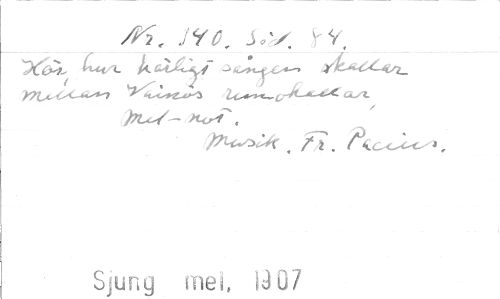 Nr. 340. Sid. 84.
Hör, hur härligt sången skallar
mellan Väinös runohallar,
Met-not.
Musik. Fr. Pacius.
Sjung mel, 1907